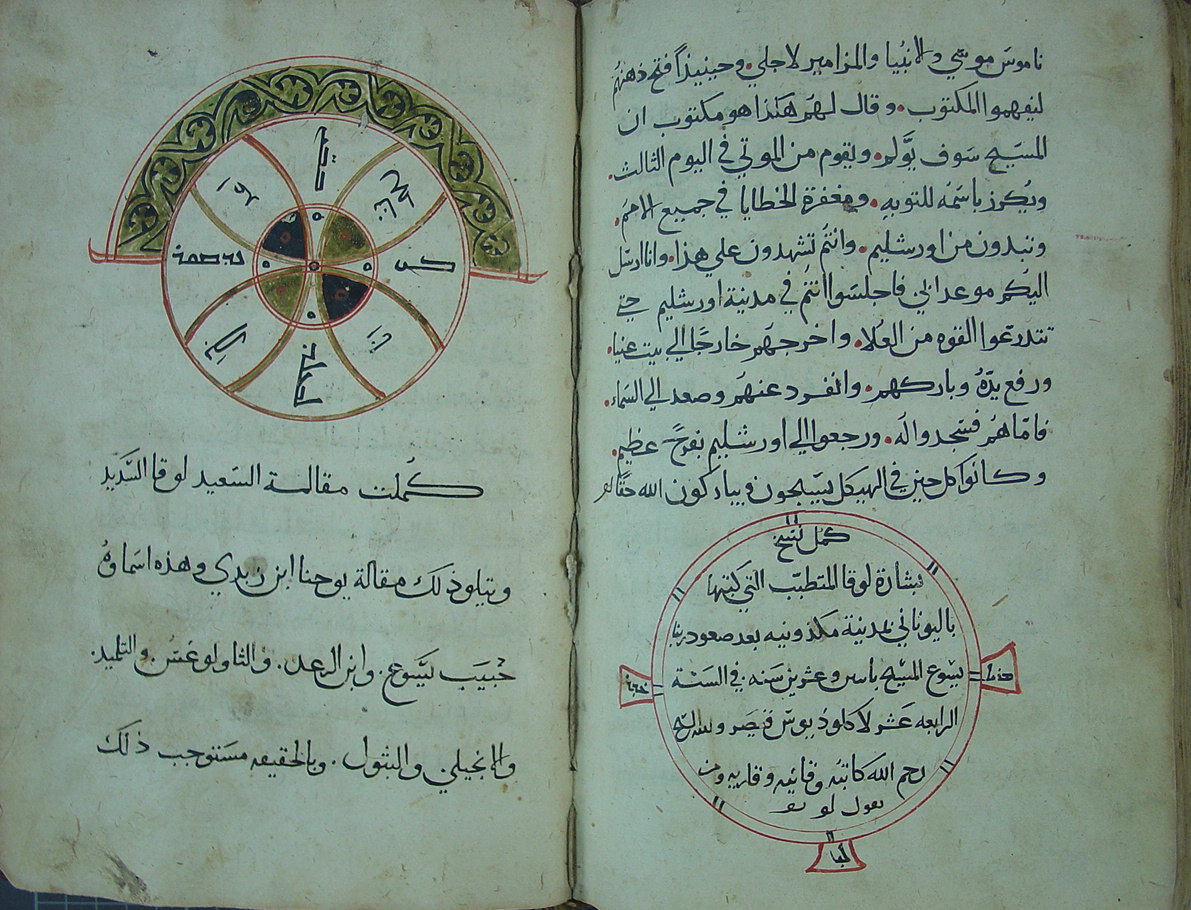 ناموس موسي والانبيا والمزامير لاجلي. وحينيذ افتح ذهنهم
ليفهموا المكتوب. وقال لهم هكذا هو مكتوب ان
المسيح سوف يولم. ويقوم من الموتي في اليوم الثالث.
ويكرز باسمه للتوبه. ومغفرة الخطايا في جميع الامم.
وتبدون من اورشليم. وانتم تشهدون علي هذا. وانا ارسل
اليكم موعد ابي فاجلسوا انتم في مدينة اورشليم حتي
تتدرعوا القوه من العلا. واخرجهم خارجًا الي بيت عنيا.
ورفع يده وباركهم. وانفرد عنهم وصعد الي السماء.
فاما هم فسجدوا له. ورجعوا الي اورشليم بفرح عظيم.
وكانوا كل حين في الهيكل يسبحون ويباركون الله حقا
كمل نسخ
بشارة لوقا المتطبب التي كتبها
باليوناني بمدينة مكذونيه بعد صعود ربنا
يسوع المسيح وعشرين سنه في السنة
الرابعه عشر لاكلوديوس قيصر
رحم الله كاتبه وقاريه
يقول
كُملت مقالة السعيد لوقا السديد
ويتلو ذلك مقالة يوحنا ابن زبدي وهذه اسماوه
حبيب يسوع. وابن الرعد. والثاولوغس. والتلميذ.
والانجيلي والبتول. وبالحقيقه مستوجب ذلك